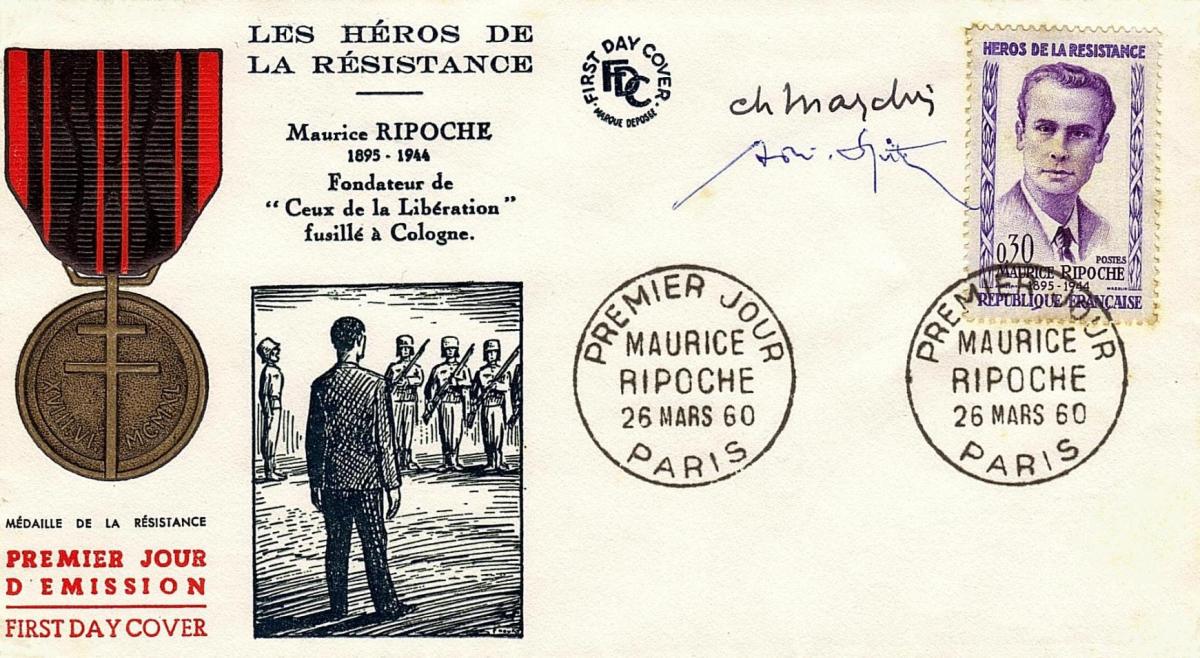 LES HÉROS DE
LA RÉSISTANCE
Maurice RIPOCHE
1895 - 1944
Fondateur de
"Ceux de la Libération"
fusillé à Cologne.
FIRST DAY COVER
FDC
MARQUE DEPOSEE
HEROS DE LA RESISTANCE
0,30
POSTES
MAURICE RIPOCHE
1895-1944
REPUBLIQUE FRANÇAISE
PREMIER JOUR
MAURICE
RIPOCHE
26 MARS 60
PARIS
PREMIER JOUR
MAURICE
RIPOCHE
26 MARS 60
PARIS
XVIII.VI. MCMXL
MÉDAILLE DE LA RÉSISTANCE
PREMIER JOUR
D'EMISSION
FIRST DAY COVER